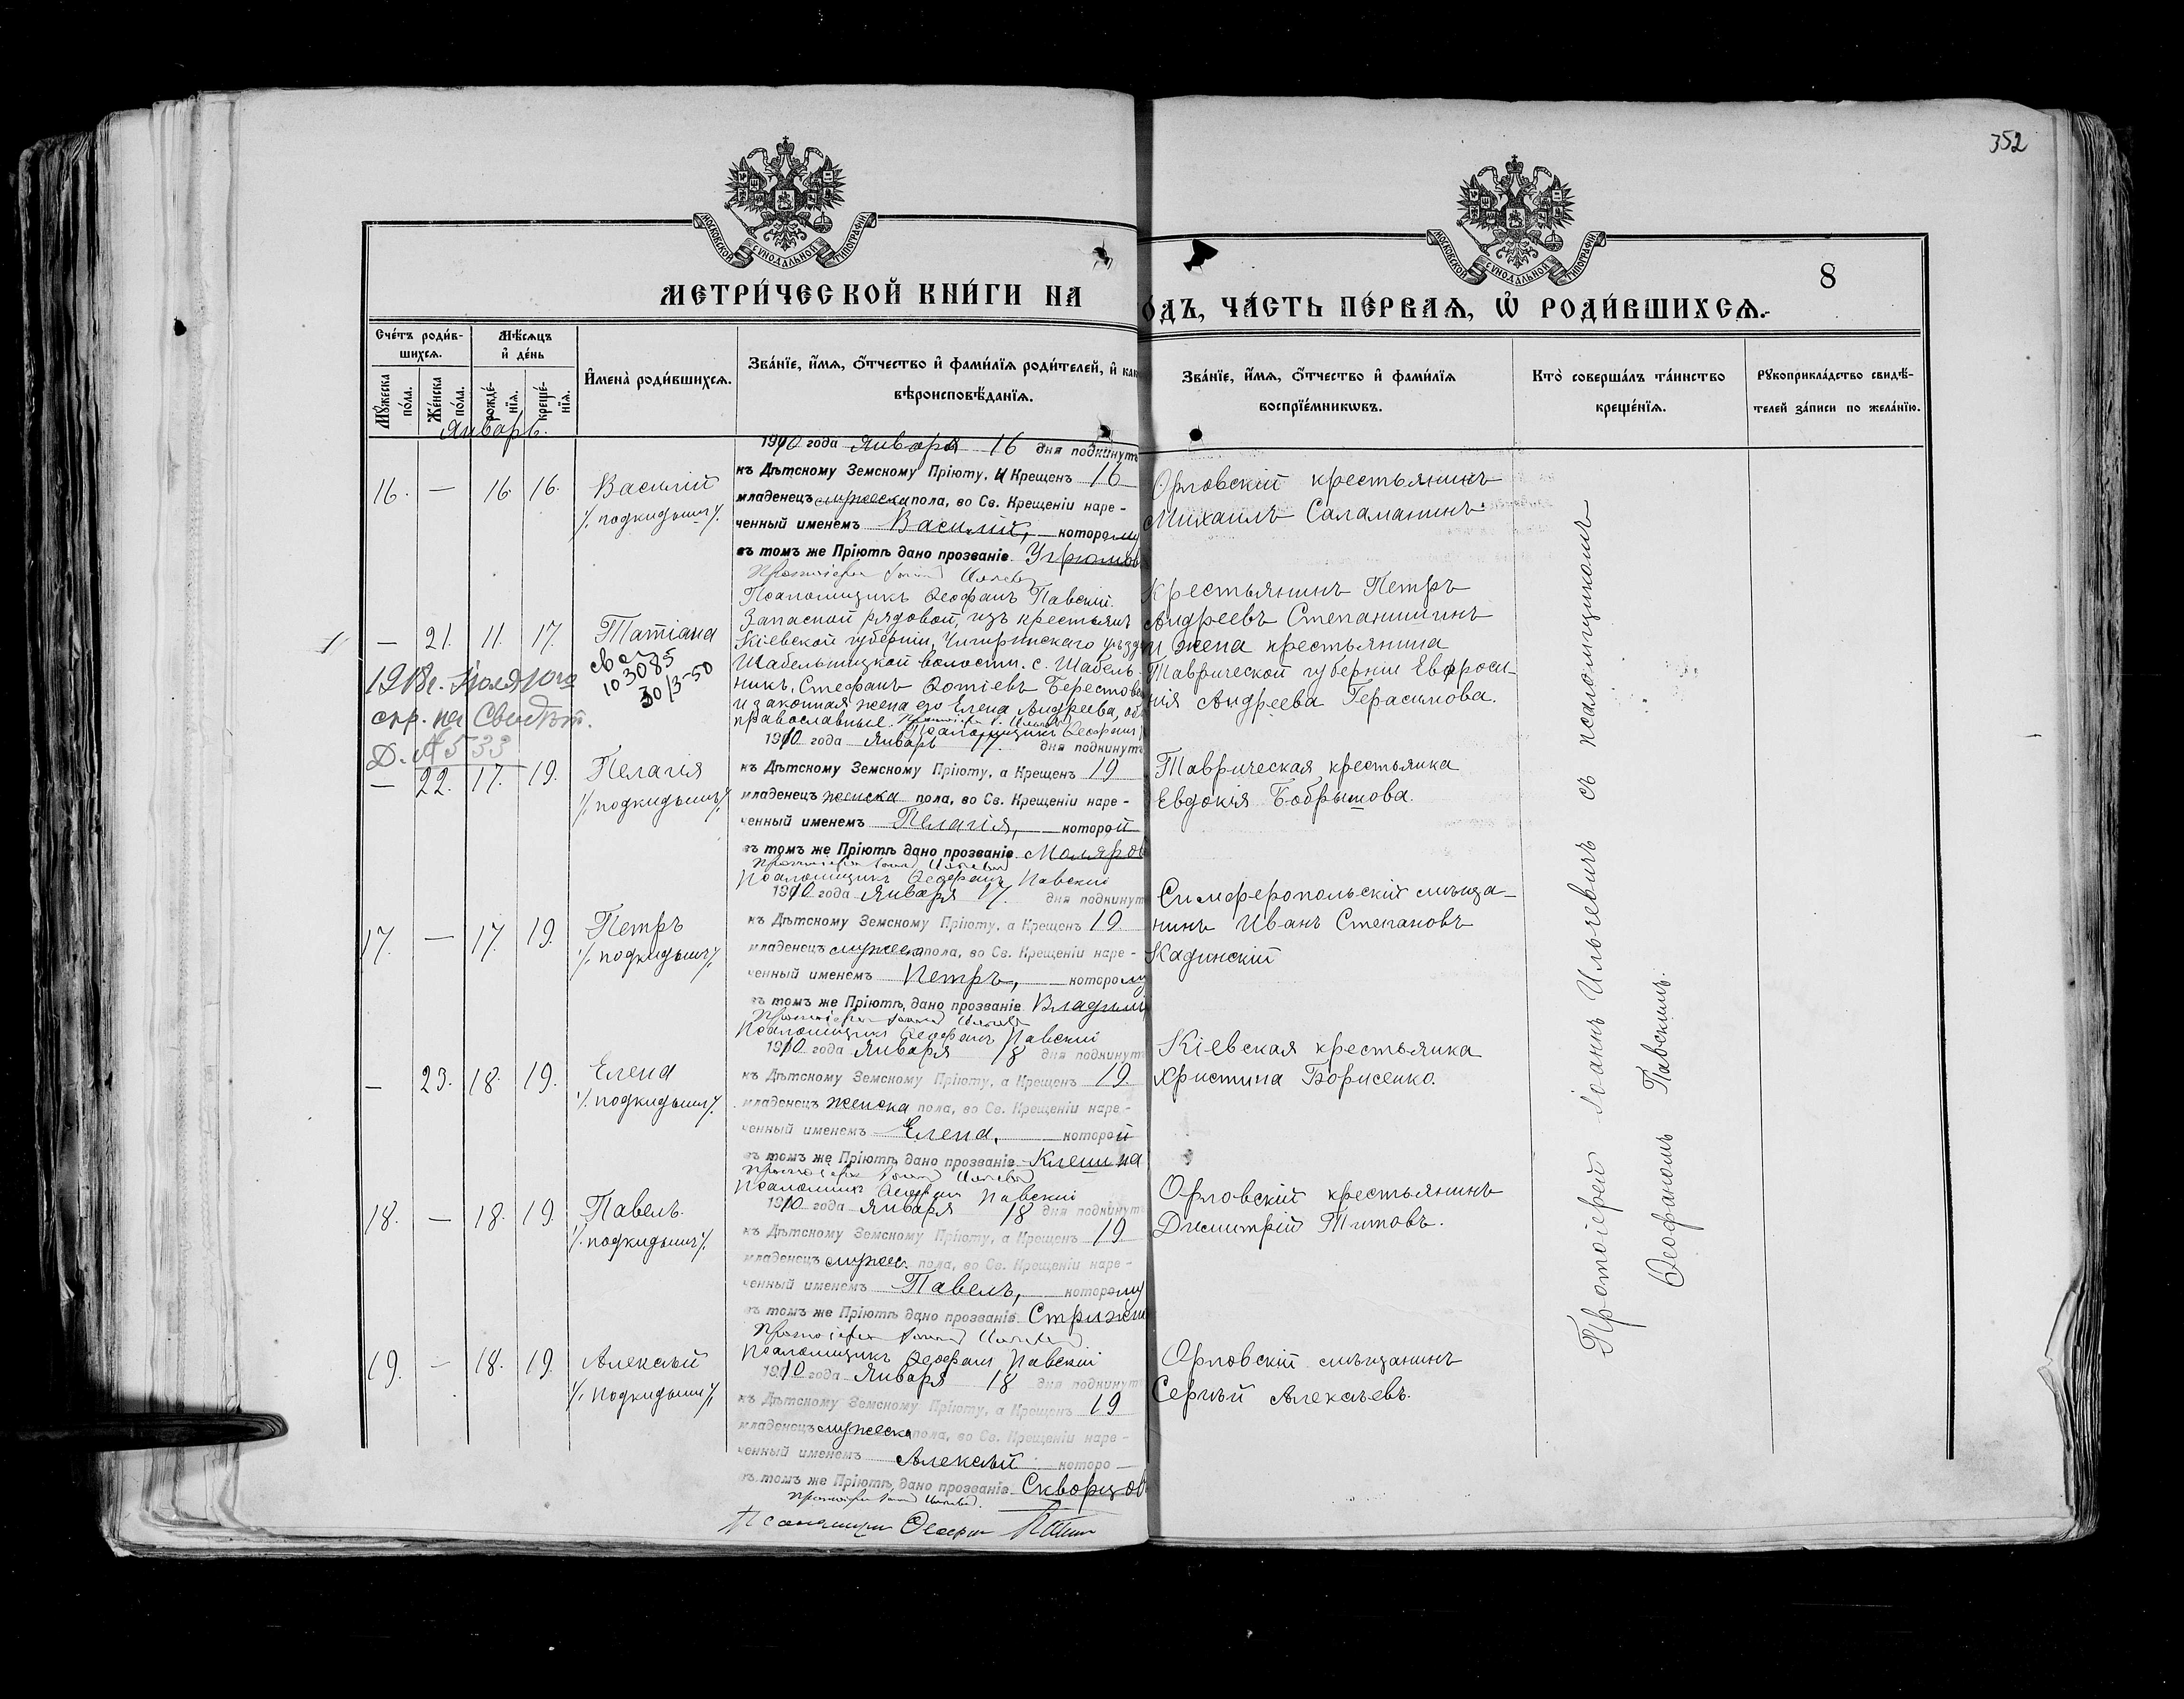 352
МОСКОВСКОЙ СУНОДАЛЬНОЙ ТИПОГРАФІИ
МОСКОВСКОЙ СУНОДАЛЬНОЙ ТИПОГРАФІИ
8
МЕТРИ́ЧЕСКОЙ КНИ́ГИ НА
О́ДЪ, ЧА́СТЬ ПЕ́РВАѦ, Ѡ҆ РОДИ́ВШИХСѦ.
Сче́тъ роди́вшихсѧ.
Мꙋ́жеска по́ла.
Же́нска по́ла.
Мѣ́сѧцъ и҆ де́нь
рожде́нїѧ.
креще́нїѧ.
И҆мена̀ роди́вшихсѧ.
Зва́нїе, и҆́мѧ, ѻ҆́тчество и҆ фами́лїѧ роди́телей, и҆ как
вѣроисповѣ́данїѧ.
Зва́нїе, и҆́мѧ, ѻ҆́тчество и҆ фами́лїѧ
воспрїе́мникѡвъ.
Кто̀ соверша́лъ та́инство
креще́нїѧ.
Рꙋкоприкла́дство свидѣ́-
телей за́писи по жела́нїю.
Январь.
16. — 16. 16. Василій
/. подкидышъ /.
1910 года Января 16 дня подкинутъ
къ Дѣтскому Земскому Пріюту, и Крещенъ 16
младенецъ мужеска пола, во Св. Крещеніи наре-
ченный именемъ Василій, которому
въ томъ же Пріютѣ дано прозваніе Угрюмов
Протоіерей Іоаннъ Ильчевич
Псаломщикъ Ѳеофанъ Павскій.
Орловскій крестьянинъ
Михаилъ Саламатинъ.
— 21. 11. 17. Татіана
Запасной рядовой, изъ крестьянъ
Кіевской губерніи, Чигиринскаго уѣзда
Шабельницкой волости, с. Шабель-
никъ, Стефанъ Фотіевъ Берестове
и законная жена его Елена Андреева, об
православные.
Псаломщикъ Ѳеофанъ
Крестьянинъ Петръ
Андреевъ Степанишинъ
и жена крестьянина
Таврической губерніи Евфроси-
нія Андреева Герасимова.
103085
30/3-50
1918 г. Іюля 10го
на Свидѣт.
№ 533
— 22. 17. 19. Пелагія
/. подкидышъ /.
1910 года Январь 17. дня подкинутъ
къ Дѣтскому Земскому Пріюту, а Крещенъ 19
младенецъ женска пола, во Св. Крещеніи наре-
ченный именемъ Пелагія, которой
въ томъ же Пріютѣ дано прозваніе Моляров
Протоіерей Іоаннъ Ильчевич
Псаломщикъ Ѳеофанъ Павскій
Таврическая крестьянка
Евдокія Бобрышова.
17. — 17. 19. Петръ
/. подкидышъ /.
1910 года Января 17. дня подкинутъ
къ Дѣтскому Земскому Пріюту, а Крещенъ 19
младенецъ мужеска пола, во Св. Крещеніи наре-
ченный именемъ Петръ, которому
въ томъ же Пріютѣ дано прозваніе Владими
Протоіерей Іоаннъ Ильчевич
Псаломщикъ Ѳеофанъ Павскій
Симферопольскій мѣща-
нинъ Иванъ Степановъ
Кадинскій
— 23. 18. 19. Елена
/. подкидышъ /.
1910 года Января 18 дня подкинутъ
къ Дѣтскому Земскому Пріюту, а Крещенъ 19.
младенецъ женска пола, во Св. Крещеніи наре-
ченный именемъ Елена, которой
въ томъ же Пріютѣ дано прозваніе Клешна
Протоіерей Іоаннъ Ильчевич
Псаломщикъ Ѳеофанъ Павскій
Кіевская крестьянка
Христина Борисенко.
18. — 18. 19. Павелъ.
/. подкидышъ /.
1910 года Января 18 дня подкинутъ
къ Дѣтскому Земскому Пріюту, а Крещенъ 19
младенецъ мужес. пола, во Св. Крещеніи наре-
ченный именемъ Павелъ, которому
въ томъ же Пріютѣ дано прозваніе Стрижен
Протоіерей Іоаннъ Ильчевич
Псаломщикъ Ѳеофанъ Павскій
Орловскій крестьянинъ
Димитрій Титовъ.
19. — 18. 19. Алексѣй
/. подкидышъ /.
1910 года Января 18 дня подкинутъ
къ Дѣтскому Земскому Пріюту, а Крещенъ 19
младенецъ мужеска пола, во Св. Крещеніи наре-
ченный именемъ Алексѣй которо
въ томъ же Пріютѣ дано прозваніе Скворцов
Протоіерей Іоаннъ Ильчевич.
Псаломщикъ Ѳеофанъ
Орловскій мѣщанинъ
Сергѣй Алексѣевъ.
Протоіерей Іоаннъ Ильчевичъ съ псаломщикомъ
Ѳеофаномъ Павскимъ.